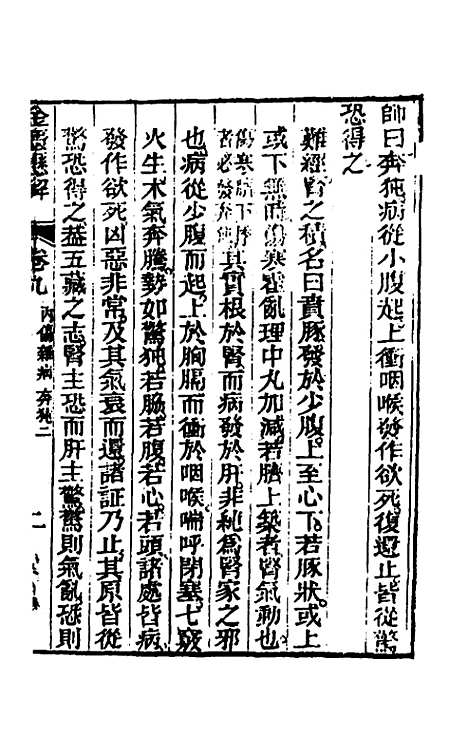 師曰奔㹠病從小腹起上衝咽喉發作欲死復還止皆從驚
恐得之
難經腎之積名曰賁豚發於少腹上至心下若豚狀或上
或下無時傷寒霍亂理中丸加減若臍上築者腎氣動也
其實根於腎而病發於肝非純為腎家之邪
也病從少腹而起上於胸膈而衝於咽喉喘呼閉塞七竅
火生木氣奔騰勢如驚㹠若脇若腹若心若頭諸處皆病
發作欲死凶惡非常及其氣衰而還諸証乃止其原皆從
驚恐得之蓋五藏之志腎主恐而肝主驚驚則氣亂恐則
金匱懸解
卷九
內傷雜病
奔㹠二
二